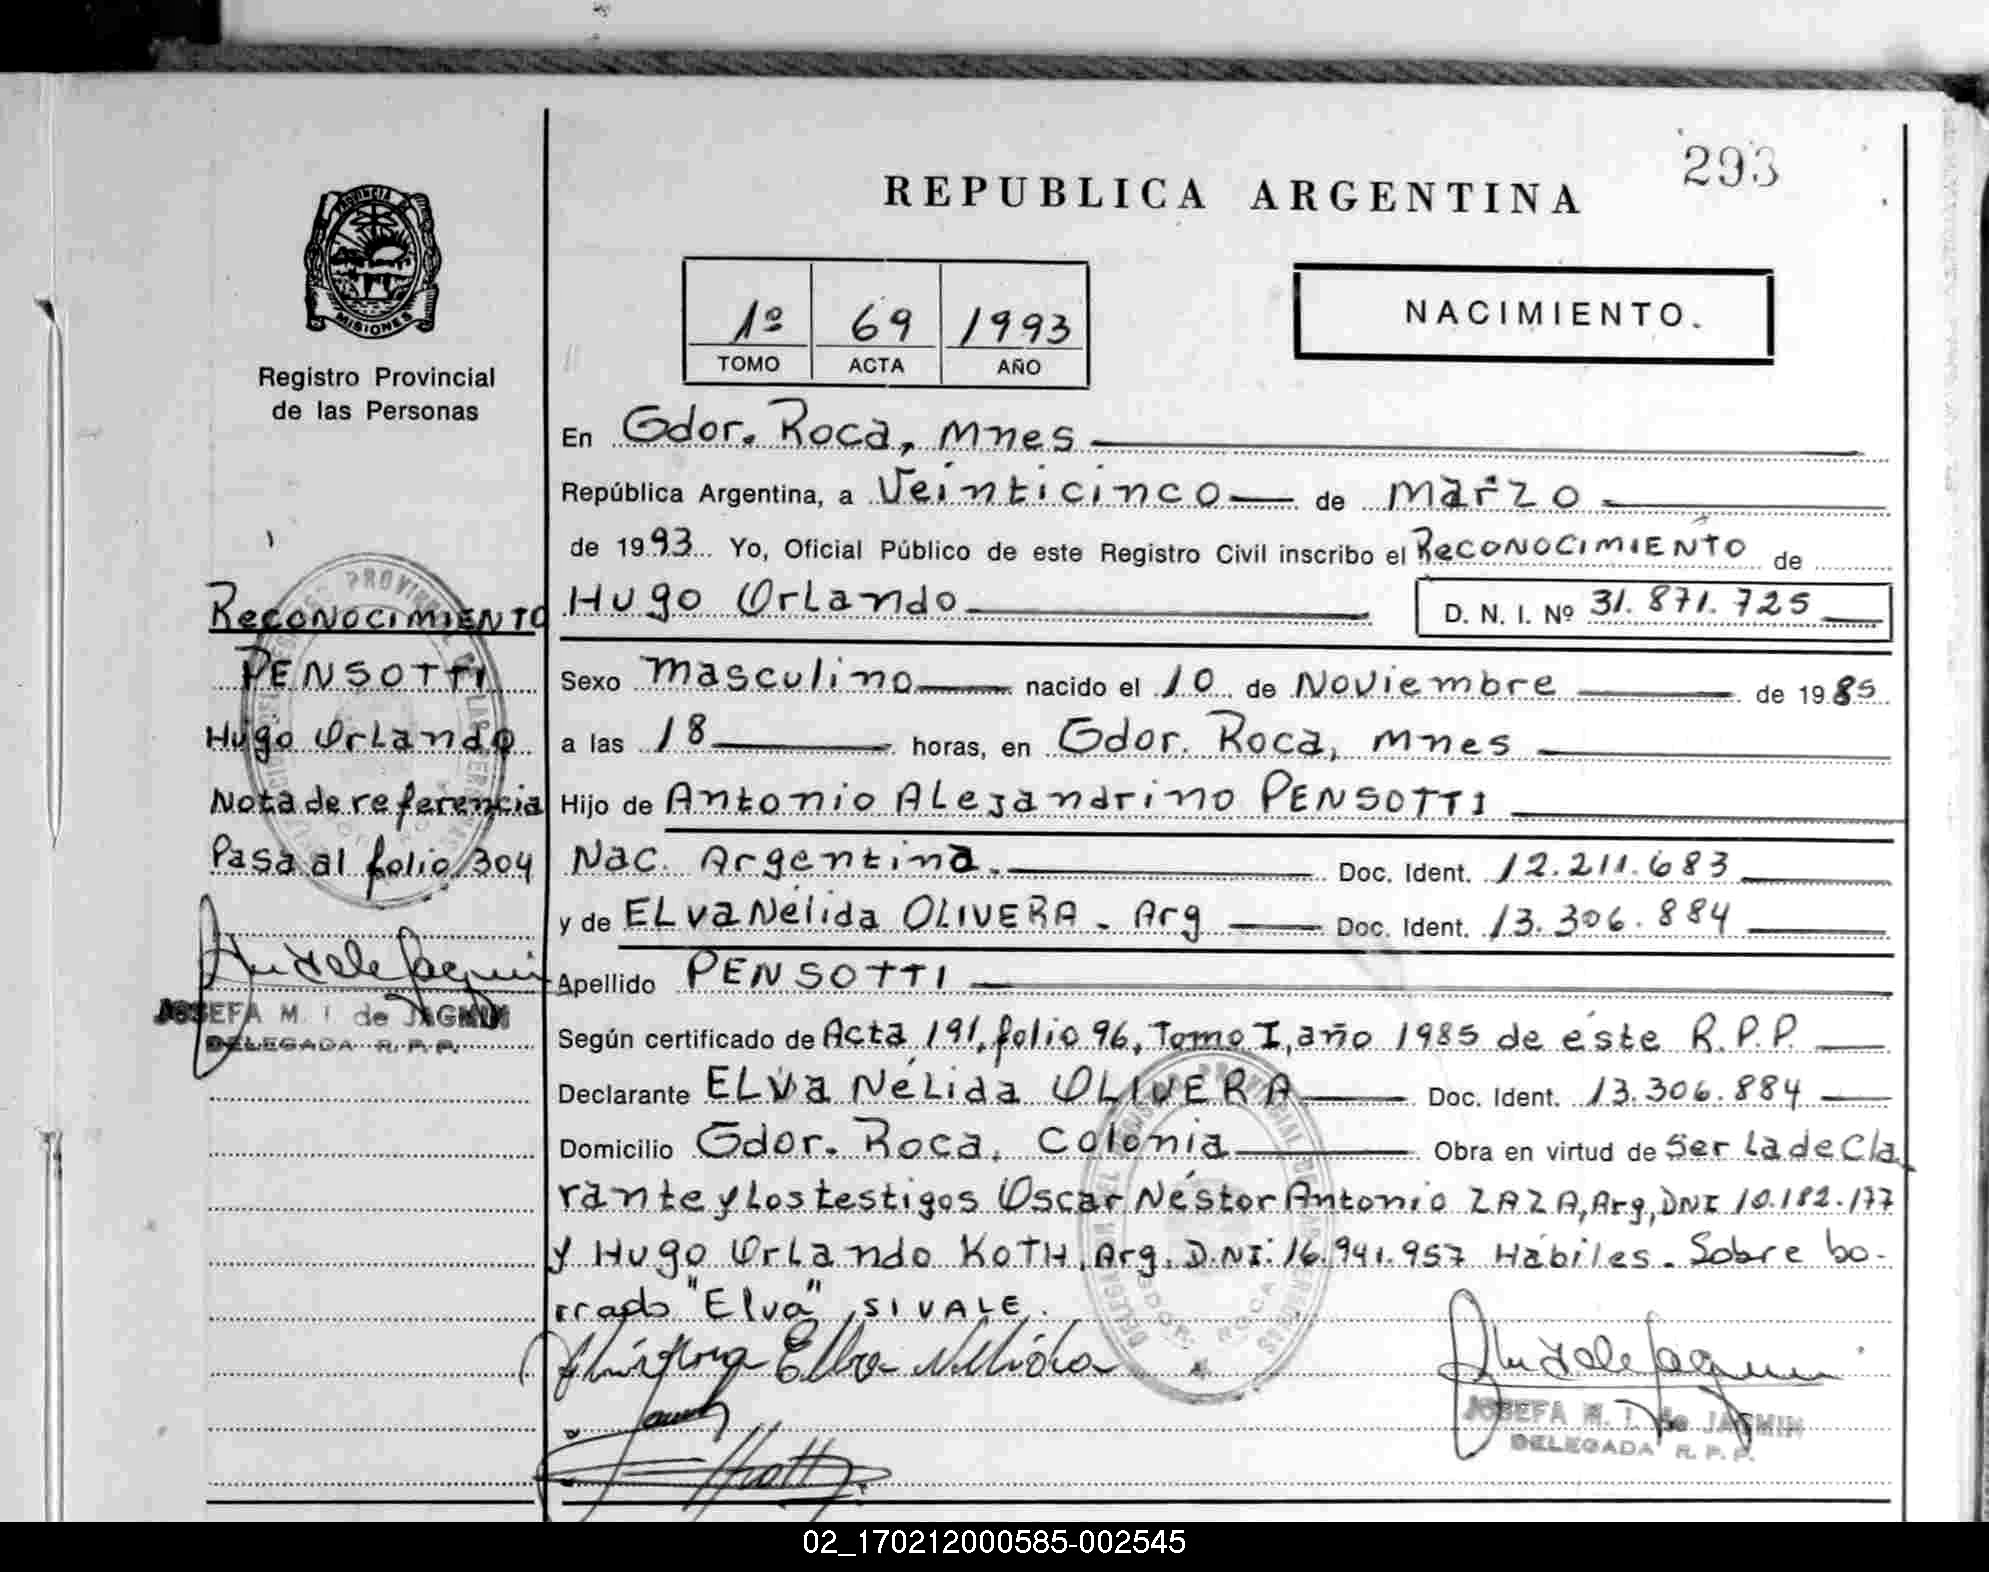 293
REPUBLICA ARGENTINA
PROVINCIA DE
MISIONES
Registro Provincial
de las Personas
1º 69 1993
TOMO ACTA AÑO
NACIMIENTO.
En Gdor. Roca, Mnes
República Argentina, a Veinticinco de Marzo
de 1993 Yo, Oficial Público de este Registro Civil inscribo el Reconocimiento de
Hugo Orlando D. N. I. Nº 31.871.725
Sexo Masculino nacido el 10 de Noviembre de 1985
a las 18 horas, en Gdor. Roca, Mnes
Hijo de Antonio Alejandrino PENSOTTI
Nac. Argentina. Doc. Ident. 12.211.683
y de Elva Nélida OLIVERA - Arg Doc. Ident. 13.306.884
Apellido PENSOTTI
Según certificado de Acta 191, folio 96, Tomo I, año 1985 de éste R.P.P.
Declarante ELVA Nélida OLIVERA Doc. Ident. 13.306.884
Domicilio Gdor. Roca, Colonia Obra en virtud de Ser la decla
rante y los testigos Oscar Néstor Antonio ZAZA, Arg, DNI 10.182.177
y Hugo Orlando KOTH, Arg. D.NI: 16.941.957 Hábiles. Sobre bo-
rrado "Elva", SI VALE.
Reconocimiento
PENSOTTI
Hugo Orlando
Nota de referencia
Pasa al folio 304
JOSEFA M. I. de JAGMIN
DELEGADA R. P. P.
GDOR. ROCA
JOSEFA M. I. de JAGMIN
DELEGADA R. P. P.
02_170212000585-002545